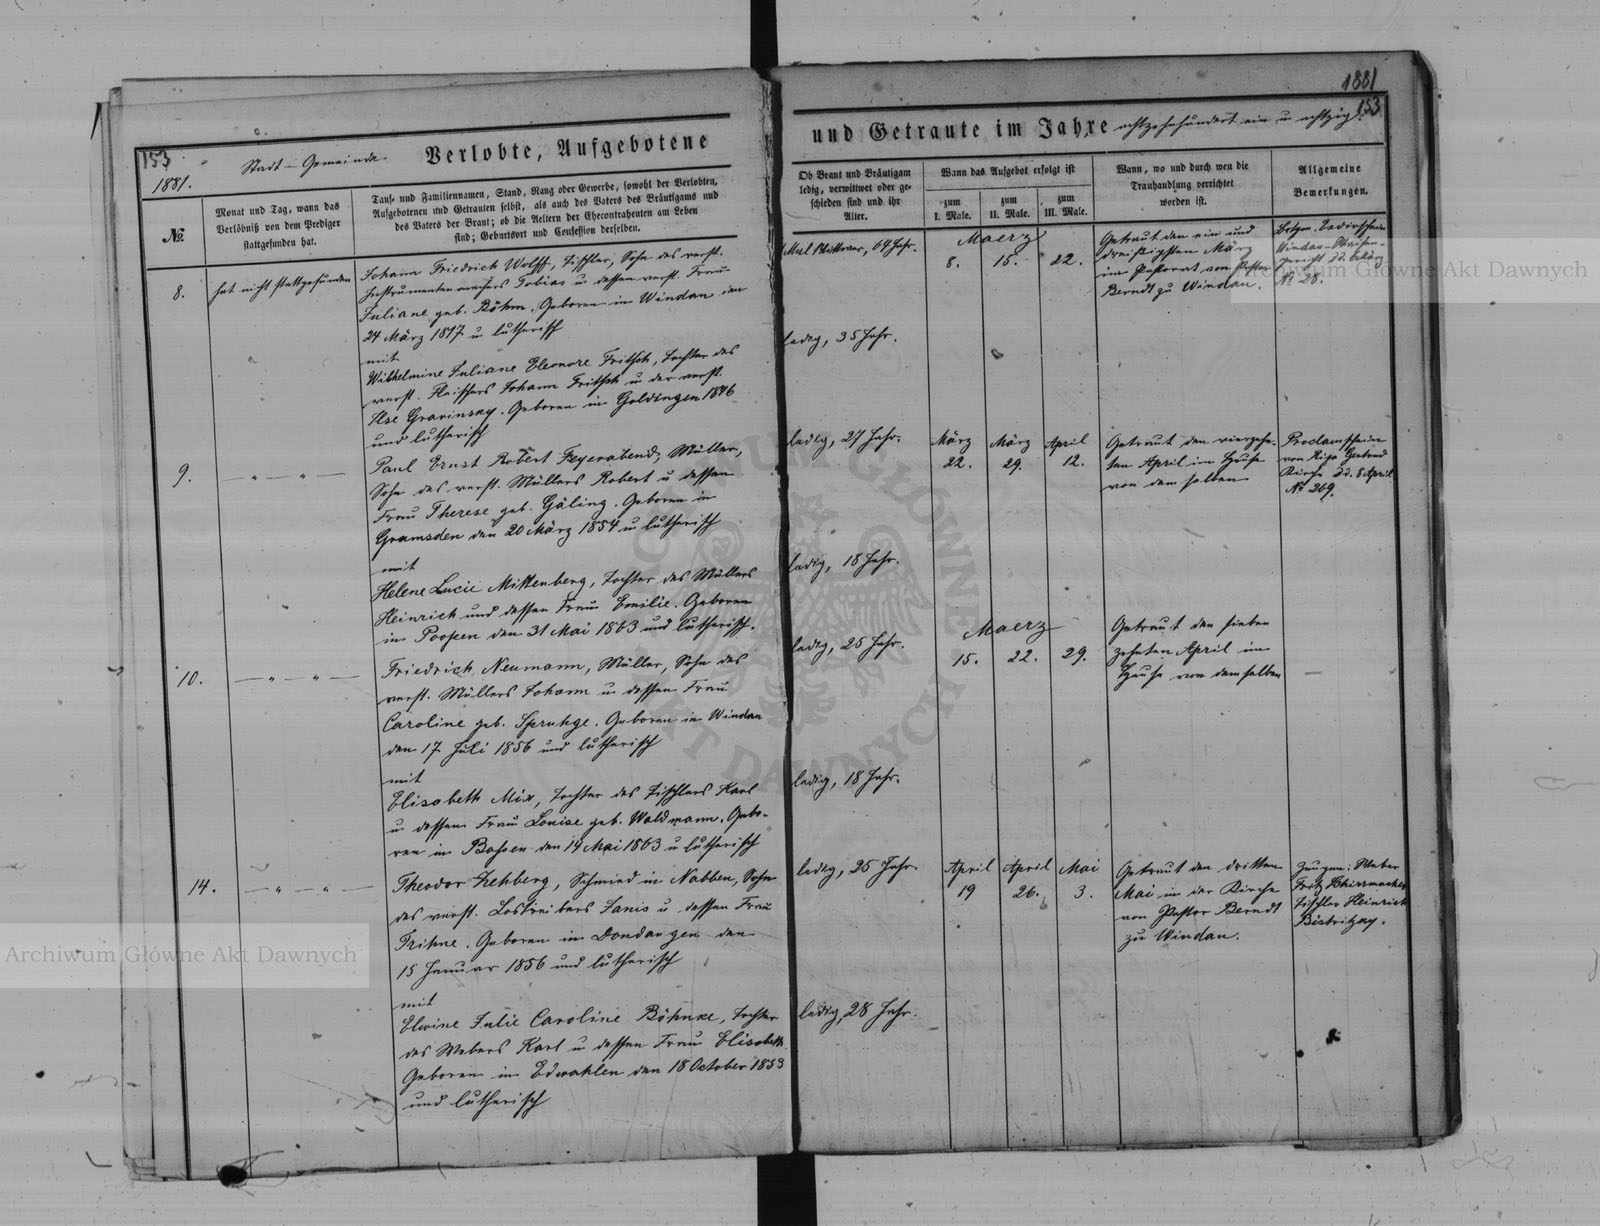 1881
153
153.
1881.
Stadt-Gemeinde
Verlobte, Aufgebotene
und Getraute im Jahre achtzehnhundert ein u achtzig.
№
Monat und Tag, wann das
Verlöbniß von dem Prediger
stattgefunden hat.
Tauf- und Familiennamen, Stand, Rang oder Gewerbe, sowohl der Verlobten,
Aufgebotenen und Getrauten selbst, als auch des Vaters des Bräutigams und
des Vaters der Braut; ob die Aeltern der Ehecontrahenten am Leben
sind; Geburtsort und Confession derselben.
Ob Braut und Bräutigam
ledig, verwittwet oder ge-
schieden sind und ihr
Alter.
Wann das Aufgebot erfolgt ist
zum
I. Male.
zum
II. Male.
zum
III. Male.
Wann, wo und durch wen die
Trauhandlung verrichtet
worden ist.
Allgemeine
Bemerkungen.
8.
hat nicht stattgefunden
Johann Friedrich Wolff, Tischler, Sohn des verst.
Instrumentenmachers Tobias u dessen verst. Frau
Juliane geb. Böhm. Geboren in Windau den
24 März 1817 u lutherisch
mit
Wilhelmine Juliane Eleonore Fritsch, Tochter des
verst. Fleischers Johann Fritsch u der verst.
Ilse Gravinsky. Geboren in Goldingen 1846
und lutherisch
Wittwer, 64 Jahr.
ledig, 35 Jahr.
Maerz
8. 15. 22.
Getraut den ein und
dreißigsten März
im Pastorat von Pastor
Berndt zu Windau.
Windau-Waisen-
gericht
№ 28.
9.
Paul Ernst Robert Feyerabend, Müller,
Sohn des verst. Müllers Robert u dessen
Frau Therese geb. Göling. Geboren in
Gramsden den 20 März 1854 u lutherisch
mit
Helene Lucie Mittenberg, Tochter des Müllers
Heinrich und dessen Frau Emilie. Geboren
in Poopen den 31 Mai 1863 und lutherisch.
ledig, 27 Jahr.
ledig, 18 Jahr.
März März April
22. 29. 12.
Getraut den vierzehn-
ten April im Hause
von demselben
Proclamschein
von Riga Gertrud
Kirche dd. 8 April
№ 269.
10.
Friedrich Neumann, Müller, Sohn des
verst. Müllers Johann u dessen Frau
Caroline geb. Spruhge. Geboren in Windau
den 17 Juli 1856 und lutherisch
mit
Elisabeth Mix, Tochter des Tischlers Karl
u dessen Frau Louise geb. Waldmann. Gebo-
ren in Bassen den 14 Mai 1863 u lutherisch
ledig, 25 Jahr.
ledig, 18 Jahr.
Maerz
15. 22. 29.
Getraut den sieben
zehnten April im
Hause von demselben
14.
Theodor Lehberg, Schmied in Nabben, Sohn
des verst. Lostreibers Janis u dessen Frau
Trihne. Geboren in Dondangen den
15 Januar 1856 und lutherisch
mit
Elwine Julie Caroline Böhnke, Tochter
des Webers Karl u dessen Frau Elisabeth
Geboren in Edwahlen den 18 October 1853
und lutherisch
ledig, 25 Jahr.
ledig, 28 Jahr.
April April Mai
19 26. 3.
Getraut den dritten
Mai in der Kirche
von Pastor Berndt
zu Windau.
Zeugen: Weber
Fritz Schirrmacher
Tischler Heinrich
Bistritzky.
Archiwum Główne Akt Dawnych
Archiwum Główne Akt Dawnych
ARCHIWUM GŁÓWNE AKT DAWNYCH